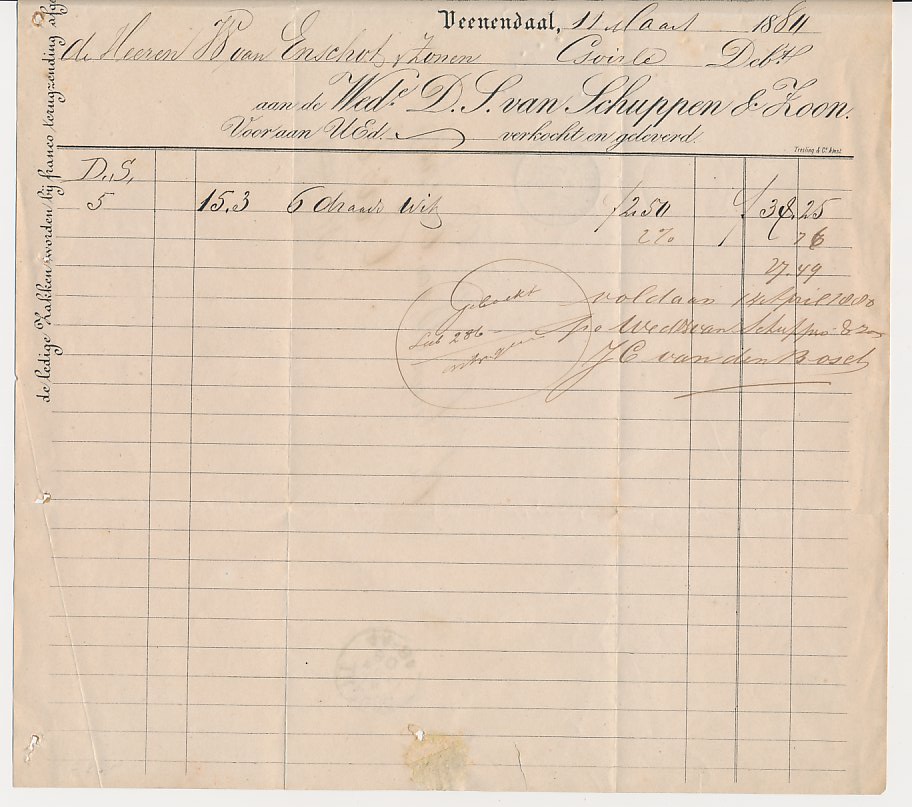 Veenendaal, 11 Maart 1880
de Heeren W van Enschot & Zonen Goirle Debt
aan de Wede D. S. van Schuppen & Zoon.
Voor aan UEd. verkocht en geleverd.
Tresling & Co. Amst.
de ledige Zakken worden bij franco terugzending
D. S.
5 15.3 6 draads Wit f 2.50 f 38.25
2% 76
37.49
voldaan 14 April 1880
po Wed van Schuppen & Zn
J C van den Bosch
Geboekt
286